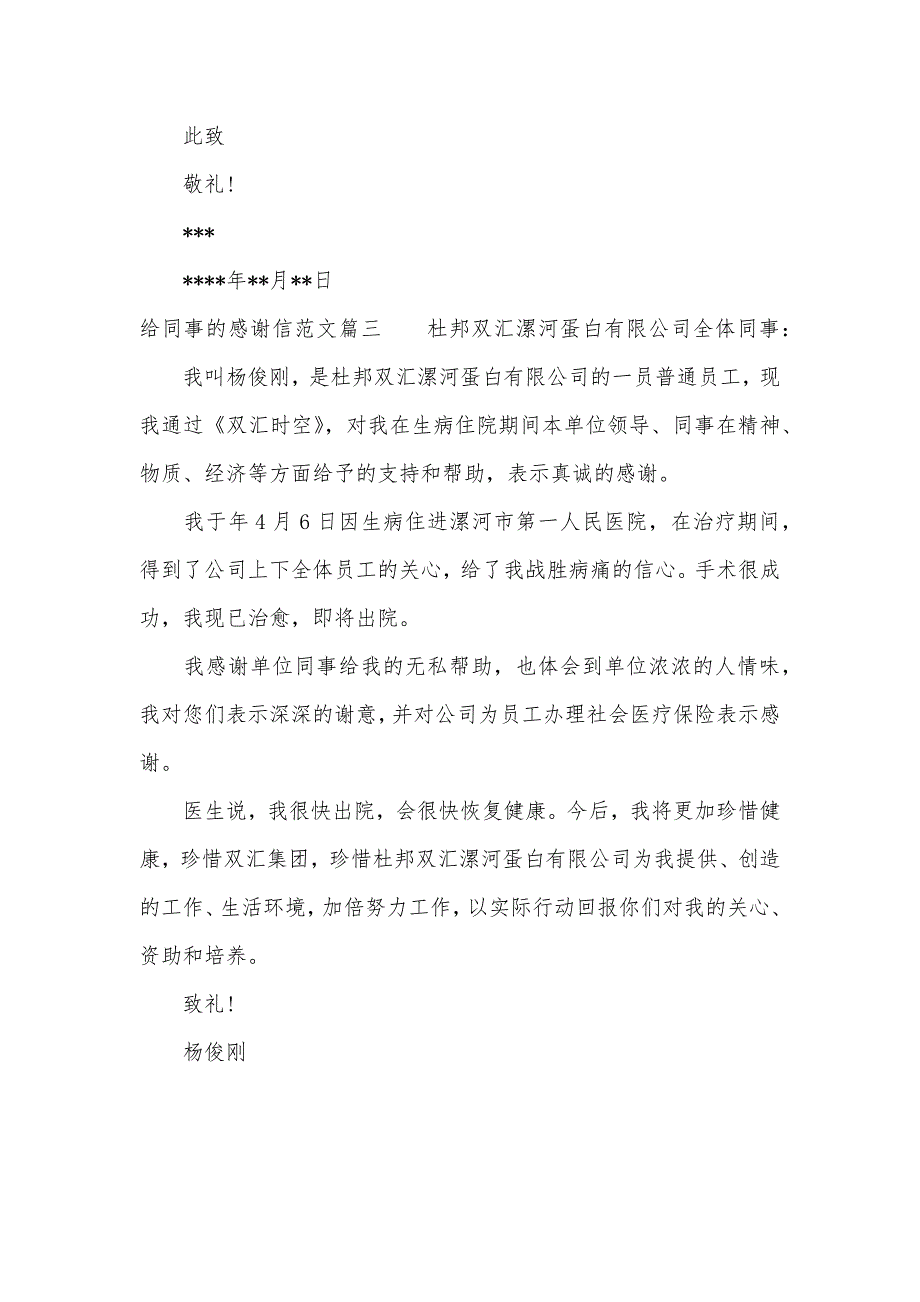 此致
敬礼!
***
****年**月**日
给同事的感谢信范文篇三　　杜邦双汇漯河蛋白有限公司全体同事:
我叫杨俊刚，是杜邦双汇漯河蛋白有限公司的一员普通员工，现
我通过《双汇时空》，对我在生病住院期间本单位领导、同事在精神、
物质、经济等方面给予的支持和帮助，表示真诚的感谢。
我于年 4 月 6 日因生病住进漯河市第一人民医院，在治疗期间，
得到了公司上下全体员工的关心，给了我战胜病痛的信心。手术很成
功，我现已治愈，即将出院。
我感谢单位同事给我的无私帮助，也体会到单位浓浓的人情味，
我对您们表示深深的谢意，并对公司为员工办理社会医疗保险表示感
谢。
医生说，我很快出院，会很快恢复健康。今后，我将更加珍惜健
康，珍惜双汇集团，珍惜杜邦双汇漯河蛋白有限公司为我提供、创造
的工作、生活环境，加倍努力工作，以实际行动回报你们对我的关心、
资助和培养。
致礼!
杨俊刚